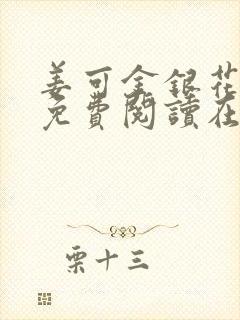 姜可金銀花
免費閱讀在
栗十三